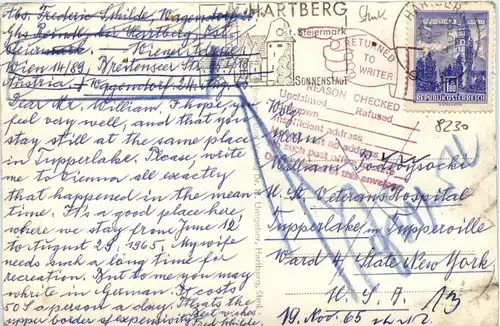 Abs. Frederic Schilde, Wagendorf
bei Hartberg, Ost-
Steiermark. Wiener Adresse:
Wien 14/89, Breitenseer Str.
Austria + Wagendorf 24. Aug.
Dear Mr. William, I hope, you
feel very well, and that you
stay still at the same place
in Tupperlake. Please, write
me to Vienna all exactly
that happened in the mean
time. It's a good place here,
where we stay from June 12,
to August 29, 1965. My wife
needs such a long time for
recreation. But to me you may
write in German. It costs
50 S a person a day. That's the
upper border of expensivity.
HARTBERG
Ost-Steiermark
SONNENSTADT
RETURNED
TO
WRITER
REASON CHECKED
Unclaimed Refused
Unknown
Insufficient address
such post office
this envelope
REPUBLIK ÖSTERREICH
8230
William
U.S. Veterans Hospital
Tupperlake in Tupperville
Ward 4. State New York
U.S.A.
19. Nov. 65